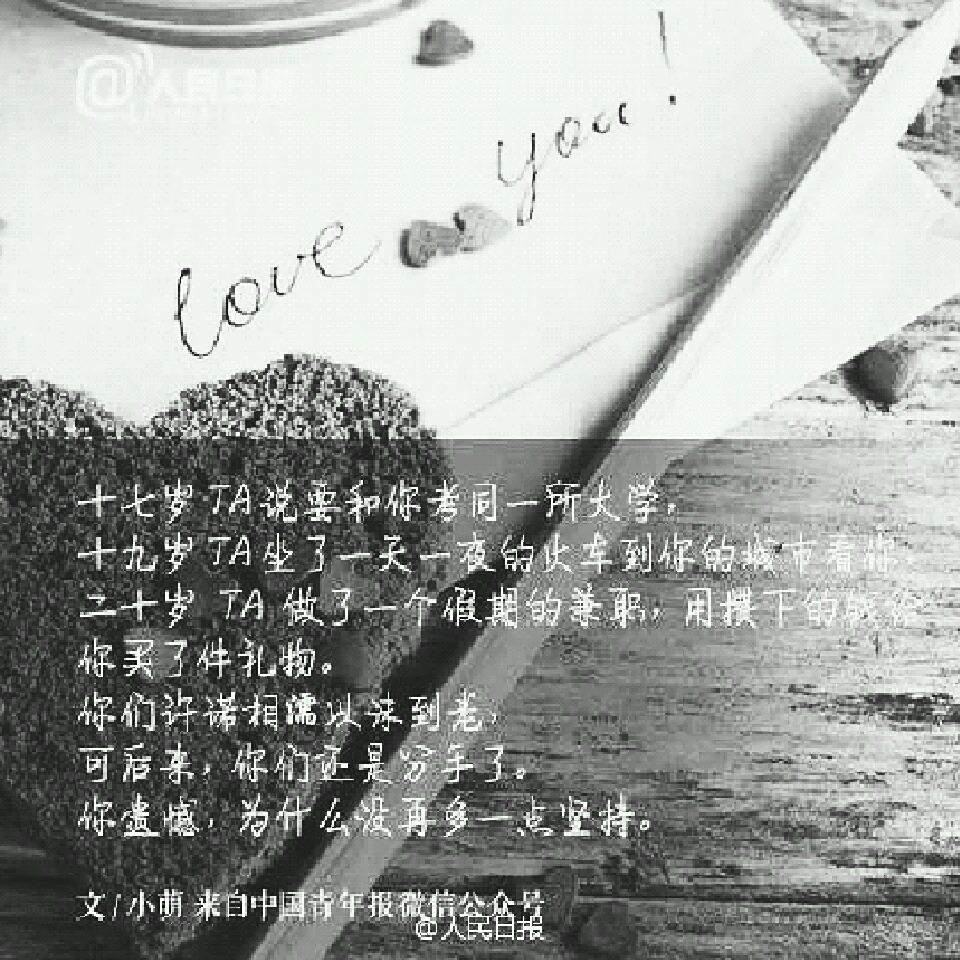 @人民日报
love you!
十七岁 TA说要和你考同一所大学。
十九岁 TA坐了一天一夜的火车到你的城市看你
二十岁 TA 做了一个假期的兼职，用攒下的钱给
你买了件礼物。
你们许诺相濡以沫到老，
可后来，你们还是分手了。
你遗憾，为什么没再多一点坚持。
文/小萌 来自中国青年报微信公众号
@人民日报